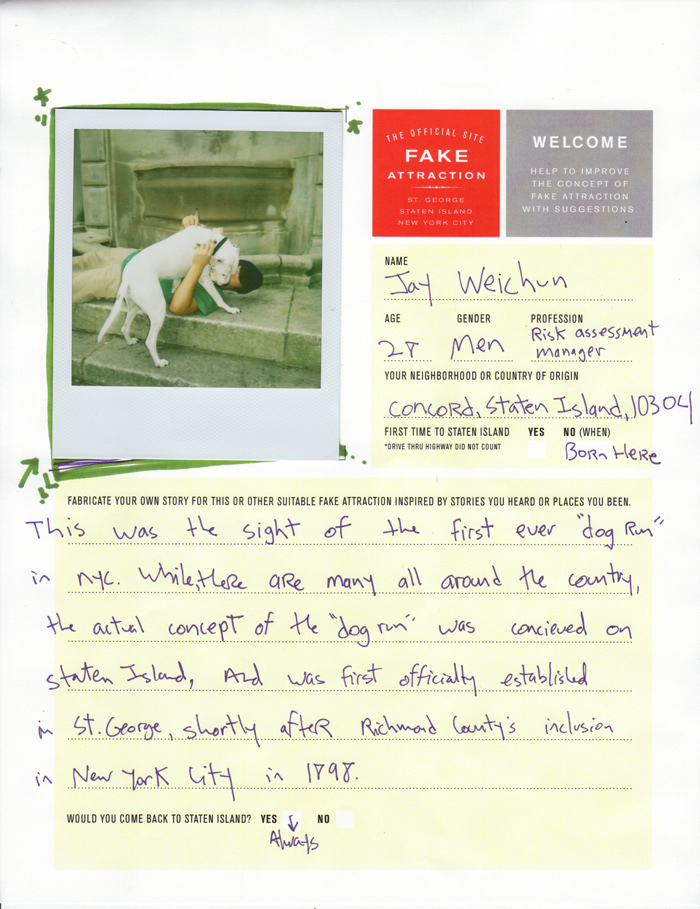 THE OFFICIAL SITE
FAKE
ATTRACTION
ST. GEORGE
STATEN ISLAND
NEW YORK CITY
WELCOME
HELP TO IMPROVE
THE CONCEPT OF
FAKE ATTRACTION
WITH SUGGESTIONS
NAME
Jay Weichun
AGE GENDER PROFESSION
28 Men Risk assessment
manager
YOUR NEIGHBORHOOD OR COUNTRY OF ORIGIN
Concord, Staten Island, 10304
FIRST TIME TO STATEN ISLAND YES NO (WHEN)
*DRIVE THRU HIGHWAY DID NOT COUNT
Born Here
FABRICATE YOUR OWN STORY FOR THIS OR OTHER SUITABLE FAKE ATTRACTION INSPIRED BY STORIES YOU HEARD OR PLACES YOU BEEN.
This was the sight of the first ever "dog Run"
in nyc. While, there are many all around the country,
the actual concept of the "dog run" was concieved on
staten Island, And was first officialty established
in St. George, shortly after Richmond County's inclusion
in New York City in 1898.
WOULD YOU COME BACK TO STATEN ISLAND? YES NO
Always